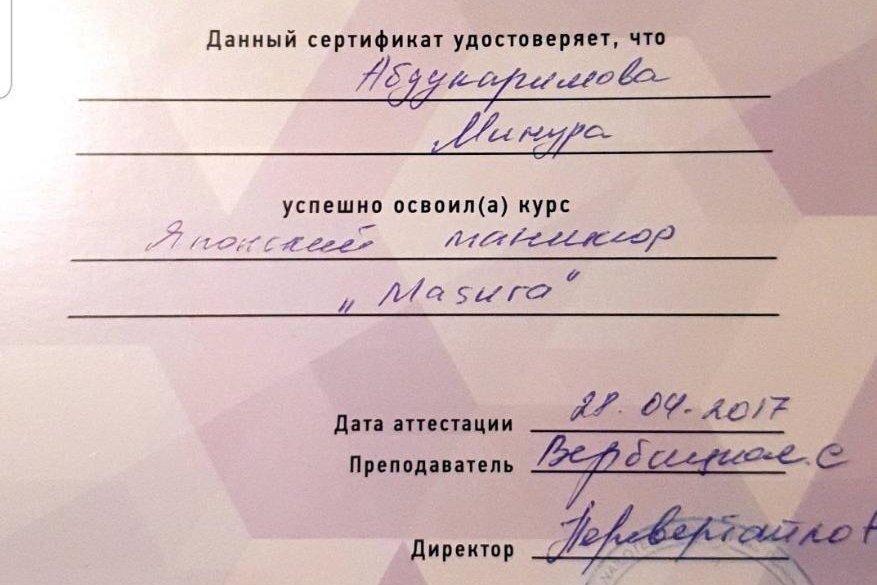 Данный сертификат удостоверяет, что
Абдукаримова
Минура
успешно освоил(а) курс
Японский маникюр
„Masura“
Дата аттестации 28.04.2017
Преподаватель Вербицкая. С
Директор